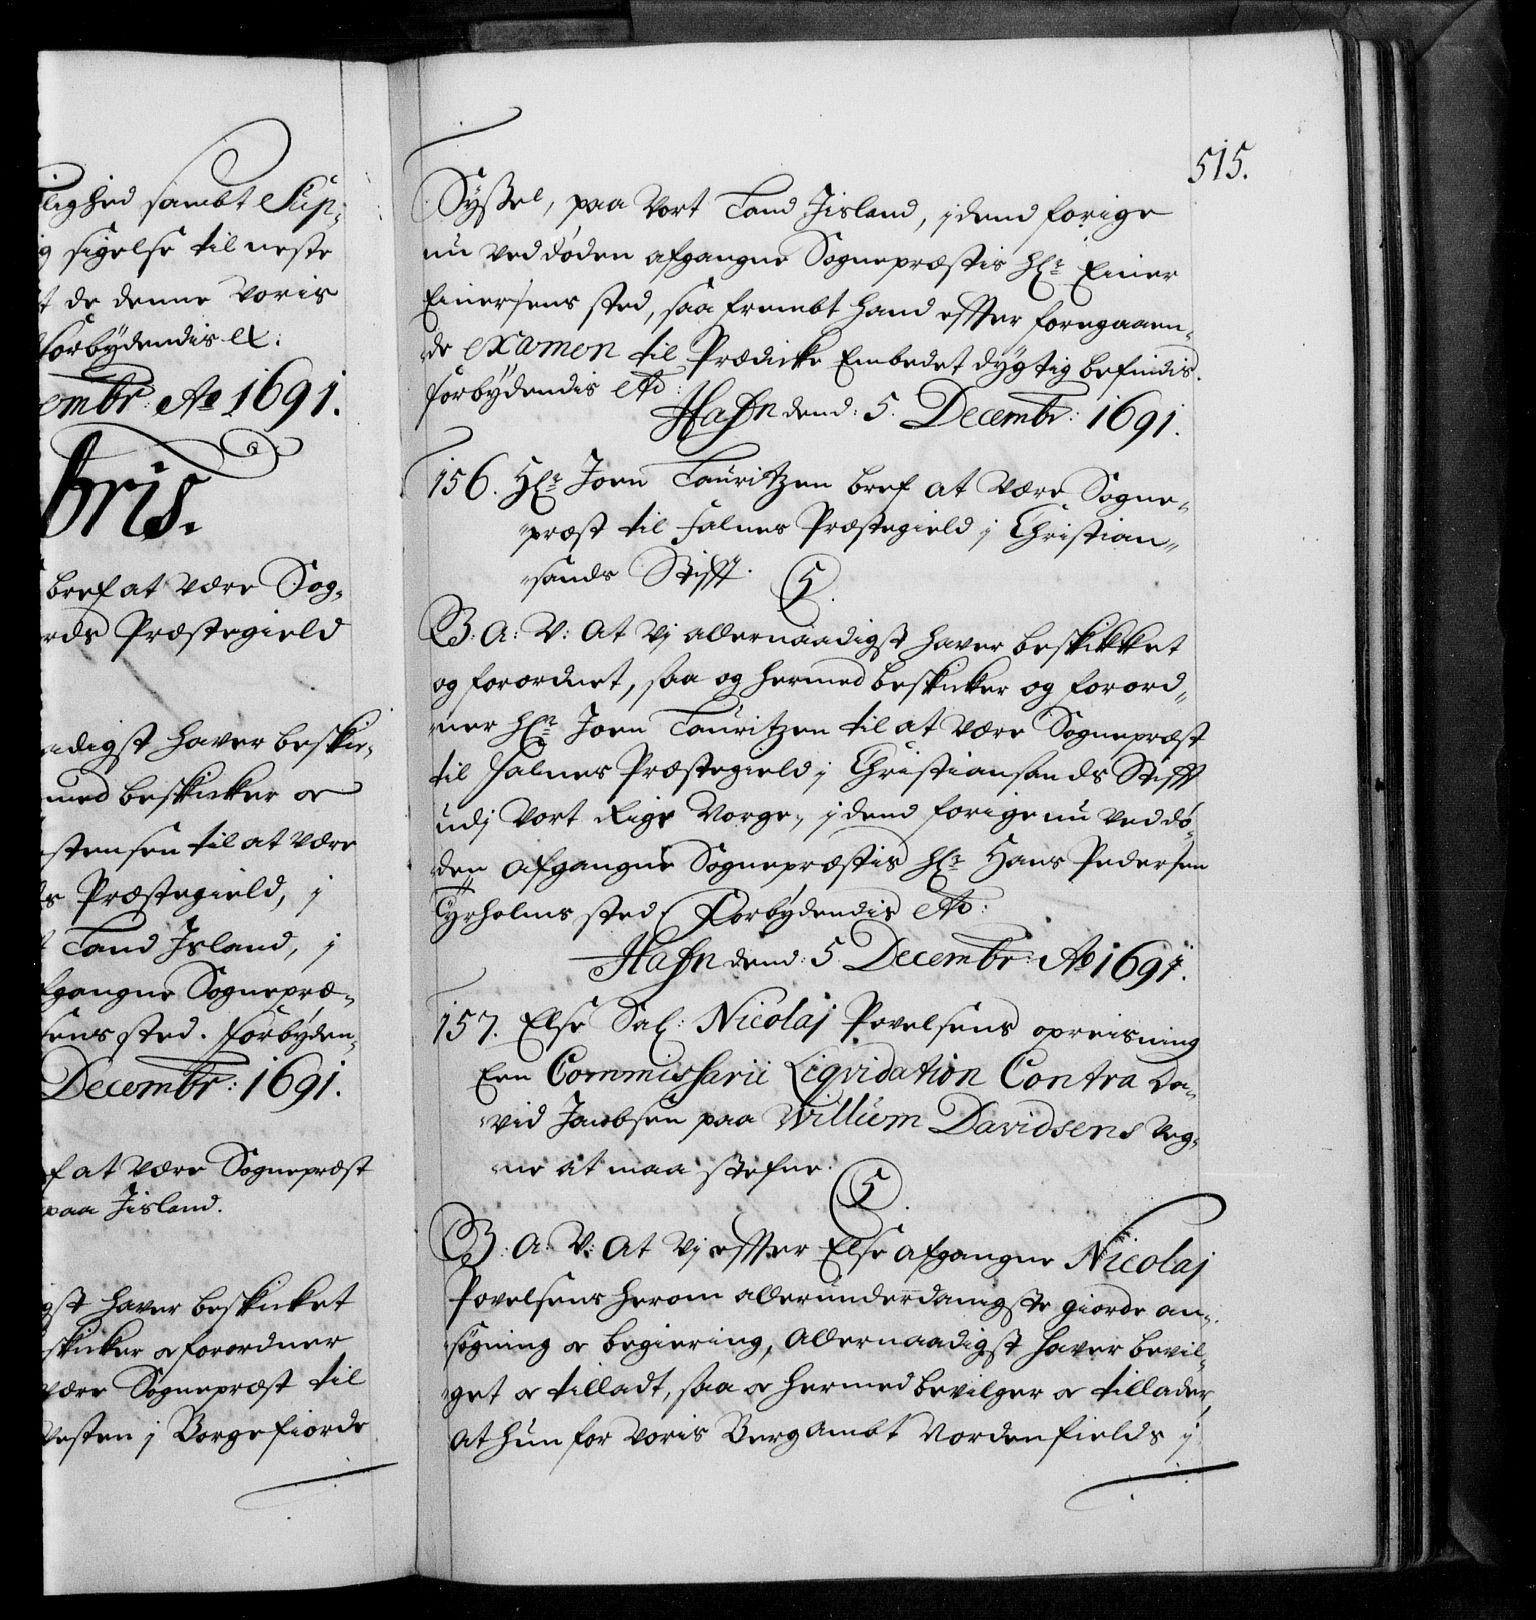 lighed sambt Sup-
sigelse til neste
de denne Voris
forbydendis etc:
embr: Ao 1691.
bris.
bref at være Sog-
rds Præstegield
adigst hafver beskic-
med beskicker oc
stensen til at være
Præstegield, j
Land Jsland, j
fgangne Sognepræ-
sens sted. forbyden-
Decembr: 1691.
f at være Sognepræst
paa Jisland.
gst hafver beskicket
skicker oc forordner
være Sognepræst til
Vesten j Borgefiorde
515.
Syßel, paa Vort Land Jisland, j dend forige
nu ved døden afgangne Sognepræstis Hr: Einer
Einersens sted, saa frembt hand effter foregaaen-
de examen til Prædicke Embedet dygtig befindis.
forbydendis etc:
Hafn dend: 5. Decembr: 1691.
156. Hr: Joen Lauritzen bref at være Sogne-
præst til Falnes Præstegield j Christian-
sands Stifft.
5.
G: A: V: At Vj allernaadigst hafver beskikket
og forordnet, saa og hermed beskicker og forord-
ner Hr: Joen Lauritzen til at være Sognepræst
til Falnes Præstegield j Christiansands Stifft
udj Vort Rige Norge, j dend forige nu ved dø-
den afgangne Sognepræstis Hr: Hans Pedersen
Tyrholms sted, Forbydendis etc:
Hafn dend: 5 Decembr: Ao 1691.
157. Else Sal: Nicolaj Povelsens opreisning
Een Commissarii Liqvidation Contra Da-
vid Jacobsen paa Willum Davidsens Veg-
ne at maa stefne.
5.
G: A: V: At Vj effter Else afgangne Nicolaj
Povelsens herom allerunderdanigste giorde an-
søgning oc begiering, Allernaadigst hafver bevil-
get oc tilladt, saa oc hermed bevilger oc tillader,
at hun for Voris Berg ambt Nordenfields j